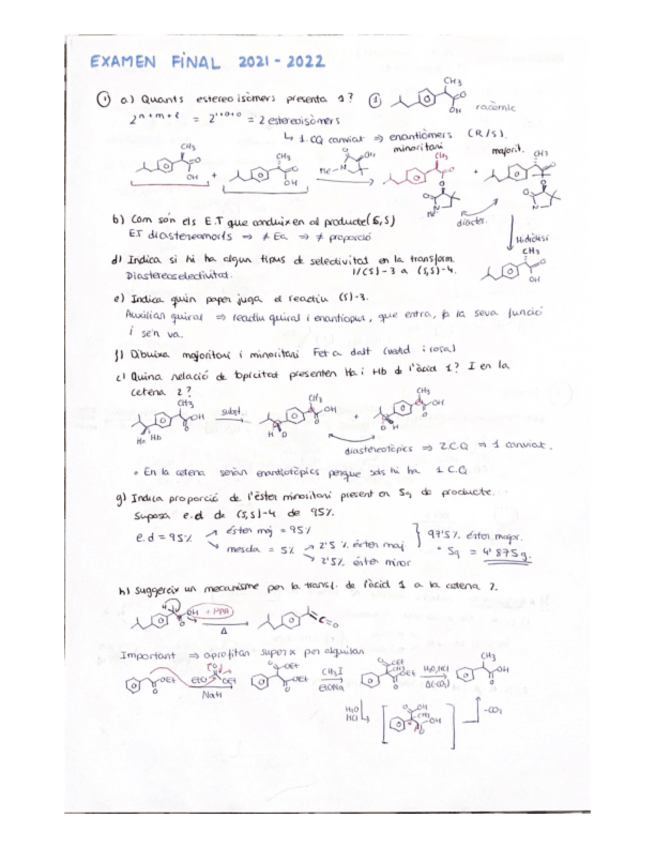 EXAMEN FINAL 2021-2022
① a) Quants estereoisòmers presenta 1? ① CH₃ O OH racèmic
2ⁿ⁺ᵐ⁺ᵗ = 2¹⁺⁰⁺⁰ = 2 estereoisòmers
↳ 1 CQ canviat ⇒ enantiòmers (R/S).
minoritari majorit.
CH₃ O OH + CH₃ O OH
b) Com són els E.T que condueixen al producte (S,S)
E.T diastereomorfs ⇒ ≠ Ea ⇒ ≠ proporció
diaster.
Hidròlisi
d) Indica si hi ha algun tipus de selectivitat en la transform.
Diastereoselectivitat. 1/(S)-3 a (S,S)-4.
CH₃ O OH
e) Indica quin paper juga el reactiu (S)-3.
Auxiliar quiral ⇒ reactiu quiral i enantiopur, que entra, fa la seva funció
i se'n va.
f) Dibuixa majoritari i minoritari Fet a dalt (verd i rosa)
c) Quina relació de topicitat presenten Ha i Hb de l'àcid 1? I en la
cetena 2?
CH₃ OH O Ha Hb subst. CH₃ OH O H D + CH₃ OH O D H
diastereotòpics ⇒ 2 C.Q ⇒ 1 canviat.
• En la cetena serien enantiotòpics perque sols hi ha 1 C.Q
g) Indica proporció de l'èster minoritari present en 5g de producte.
Suposa e.d de (S,S)-4 de 95%.
e.d = 95% èster maj = 95%
mescla = 5% 2'5 % èster maj
2'5% èster minor
97'5% èster major.
• 5g = 4'875g.
h) Suggereix un mecanisme per la transf. de l'àcid 1 a la cetena 2.
Δ C=O
Important ⇒ aprofitar superx per alquilar
OEt O EtO O OEt NaH OEt O OEt O CH₃I EtONa OEt O CH₃ OEt O H₂O, HCl Δ(-CO₂) CH₃ OH O
H₂O HCl O OH CH₃ OH O -CO₂